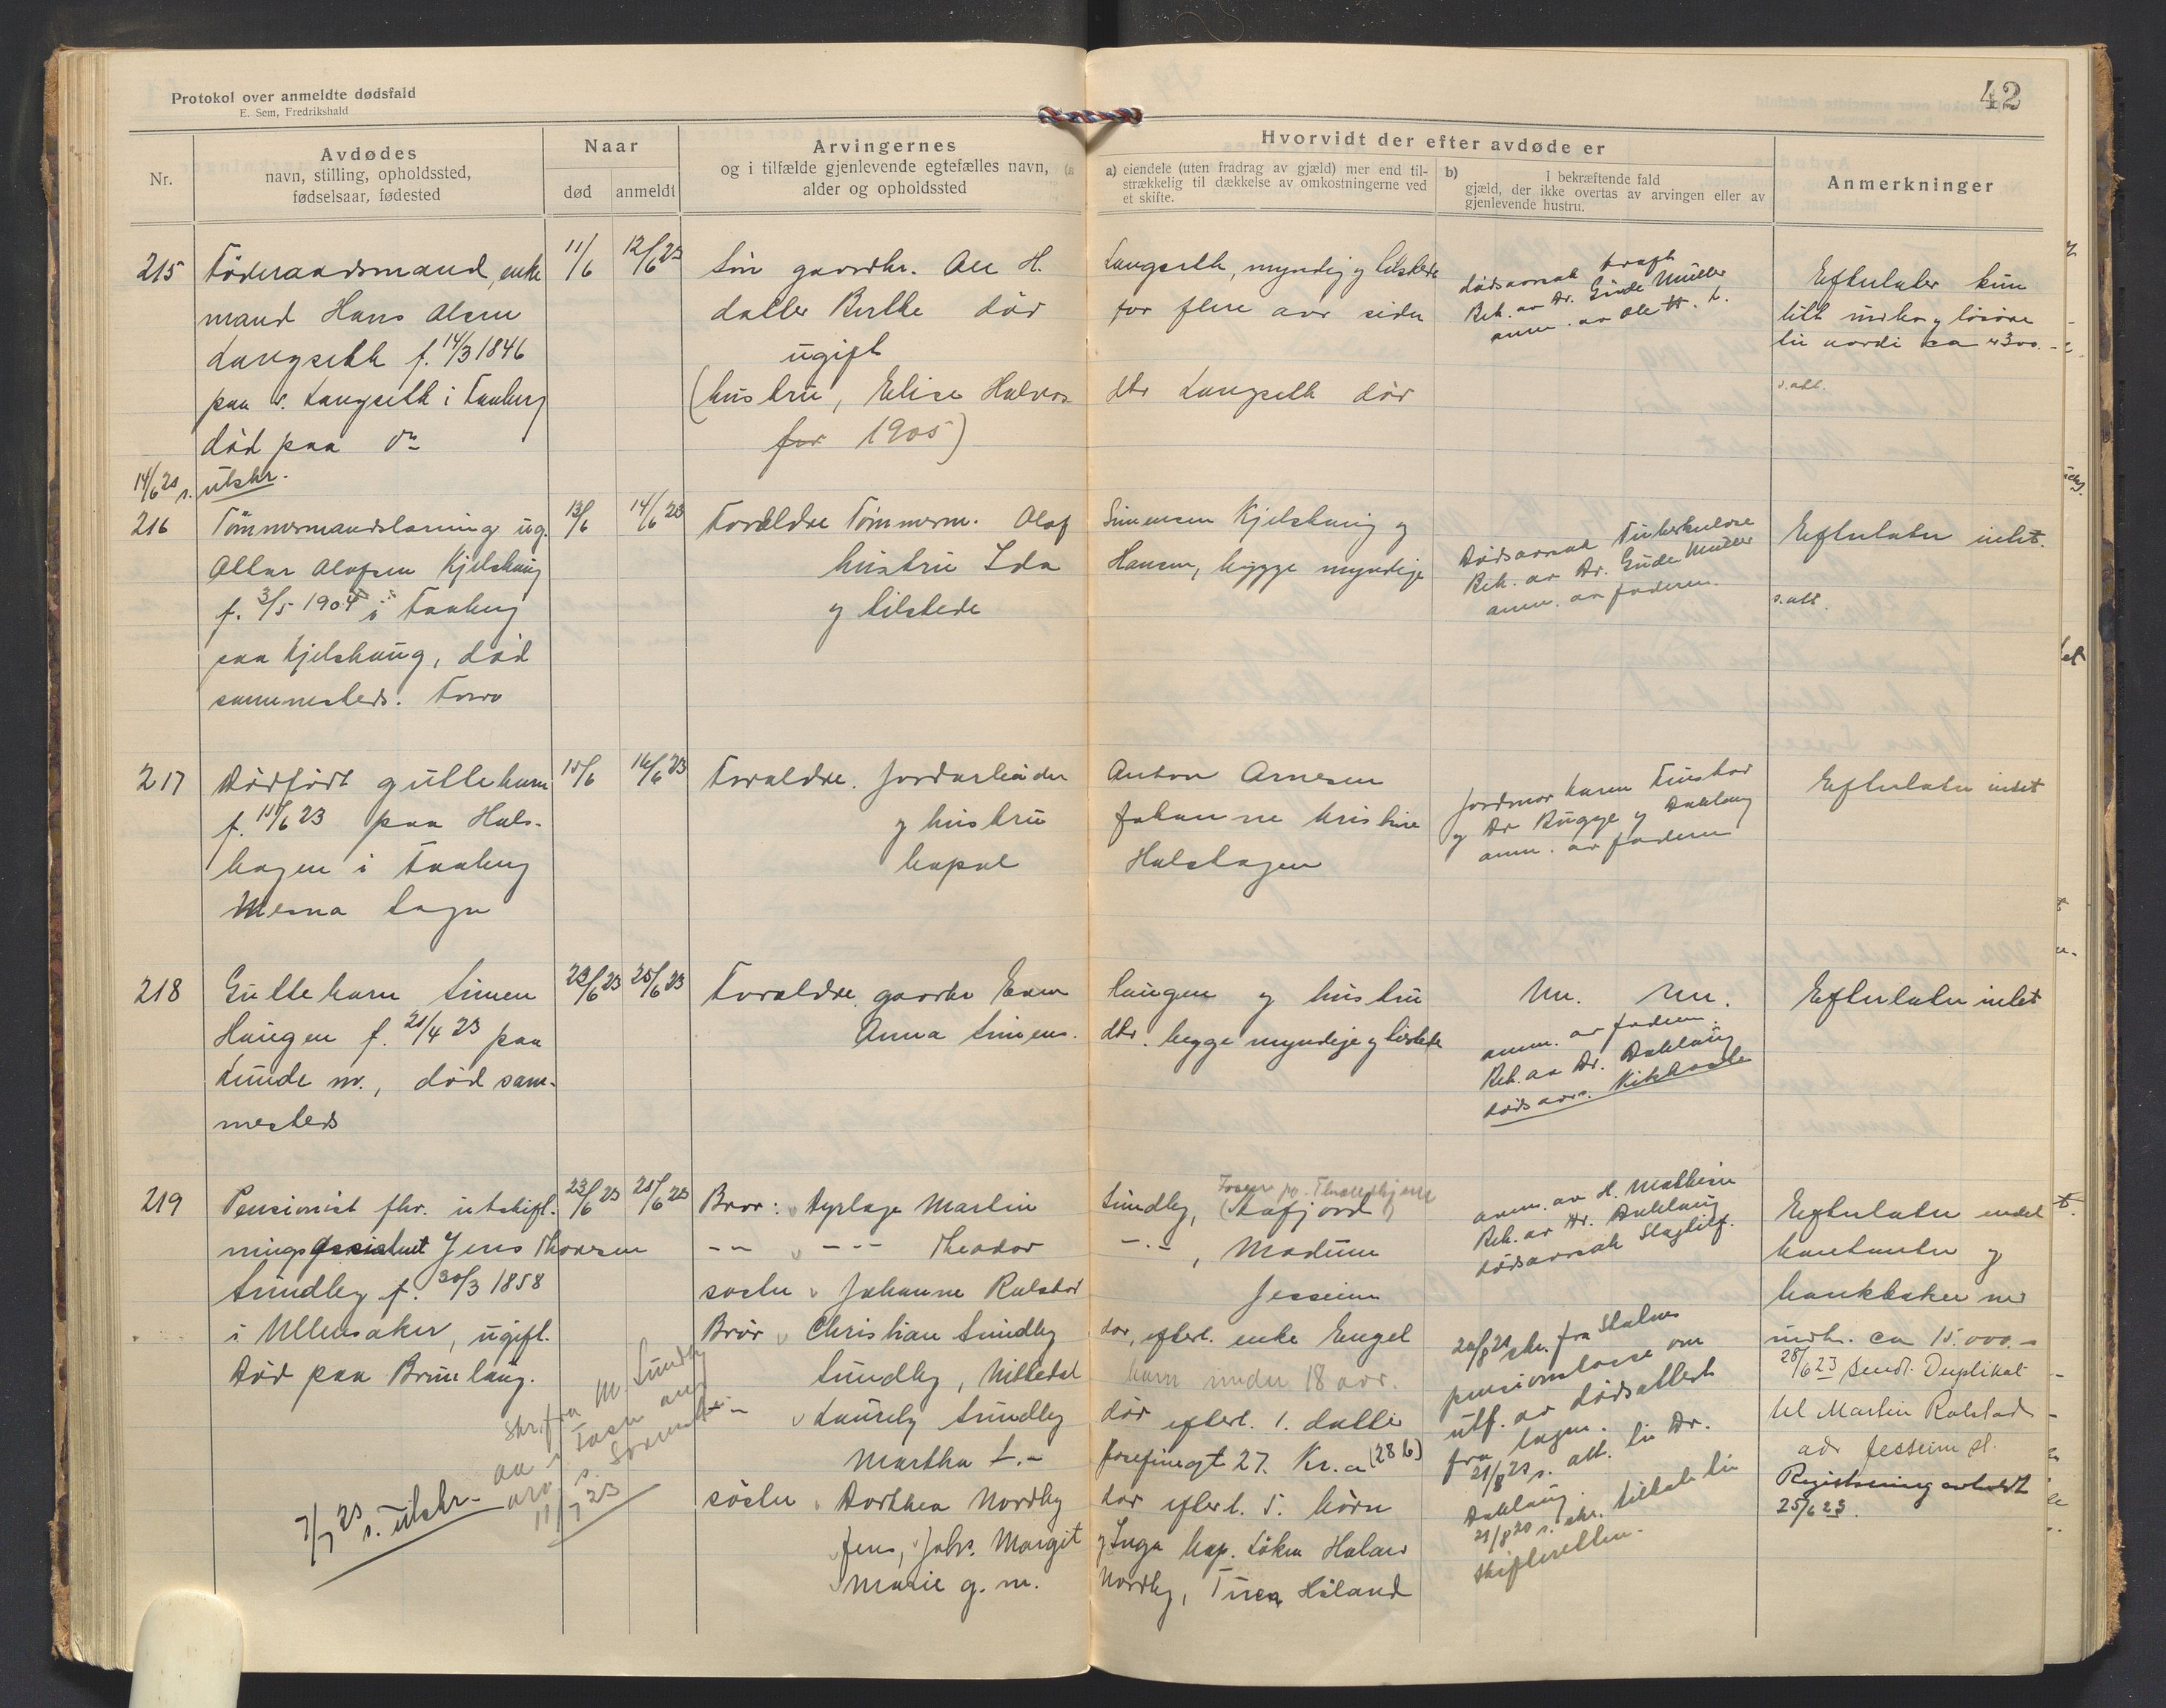 Protokol over anmeldte dødsfald
E. Sem, Fredrikshald
42
Nr.
Avdødes
navn, stilling, opholdssted,
fødselsaar, fødested
Naar
død
anmeldt
Arvingernes
og i tilfælde gjenlevende egtefælles navn,
alder og opholdssted
Hvorvidt der efter avdøde er
a) eiendele (uten fradrag av gjæld) mer end til-
strækkelig til dækkelse av omkostningerne ved
et skifte.
b) I bekræftende fald
gjæld, der ikke overtas av arvingen eller av
gjenlevende hustru.
Anmerkninger
215
Föderaadsmand, enke
mand Hans Olsen
Langseth f. 14/3 1846
paa v. Langseth i Faaberg
död paa do
14/6 23 s. utskr.
11/6
12/6 23
Sön gaardbr. Ole H.
datter Berthe död
ugift
(hustru, Elise Halvors
før 1905)
Langseth, myndig og tilstede
for flere aar siden
dtr Langseth död
dødsaarsak
Beh. av Dr. Gude Müller
anm. av Ole H. L.
Efterlater kun
litt indbo og lösöre
til værdi ca 300.-
s. att.
216
Tömmermandslærling ug.
Olafsen Kjelshaug
f. 3/5 1904 i Faaberg
paa Kjelshaug, död
sammesteds.
13/6
14/6 23
Forældre Tömmerm. Olaf
hustru Ida
og tilstede
Simensen Kjelshaug og
Hansen, begge myndige
Dödsaarsak Tuberkulose
Beh. av Dr. Gude Müller
anm. av faderen.
Efterlater intet.
s. att.
217
Dödfödt guttebarn
f. 15/6 23 paa Hals-
hagen i Faaberg
Mesna sogn
15/6
16/6 23
Forældre. Jordarbeider
og hustru
Anton Arnesen
Johanne Kristine
Halshagen
Jordmor Karen
og Dr Rugge og Dahlaug
anm. av faderen
Efterlater intet
218
Guttebarn Simen
Haugen f. 21/4 23 paa
Lunde m., död sam-
mesteds
23/6 23
25/6 23
Forældre gaardbr Even
Anna Simens.
Haugen og hustru
dtr. begge myndige og tilstede
anm. av faderen.
Beh. av Dr. Dahlaug
dödsaars.
Efterlater intet
219
Pensionist fhv. utskift-
ningsassistent Jens Thoresen
Sundby f. 30/3 1858
i Ullensaker, ugift.
Död paa Brunlaug.
23/6 23
25/6 23
Bror: Dyrlæge Martin
-- -- Theodor
søster Johanne Ralstad
Bror Christian Sundby
Sundby, Nittedal
-- Laurits Sundby
Martha L.-
søster Dorthea Nordby
Jens, Johs. Margit
Marie g. m.
Sundby, (Tafjord)
-.- , Modum
Jessum
død, efterl. enke Engel
barn under 18 aar.
død efterl. 1. datter
Josefinegt 27. Kr.a (28 b)
död efterl. 5. börn
og Inga
Nordby, Höland
anm. av H. Mathisen
Beh. av Dr. Dahlaug
dödsaarsak Slagtilf.
20/8 23 skr. fra Statens
pensionskasse om
utf. av dödsattest
fra sognepr.
21/8 23 s. att. til Dr.
Dahlaug.
21/8 23 s. skr. tilbake til
skifteretten.
Efterlater endel
kontanter og
bankböker med
indh. ca 15.000.-
28/6 23 sendt Duplikat
til Martin Ralstad
adr Jessum st.
Registrering avholdt
25/6 23.
7/7 23 s. utskr.
skr. fra M. Sundby
11/7 23